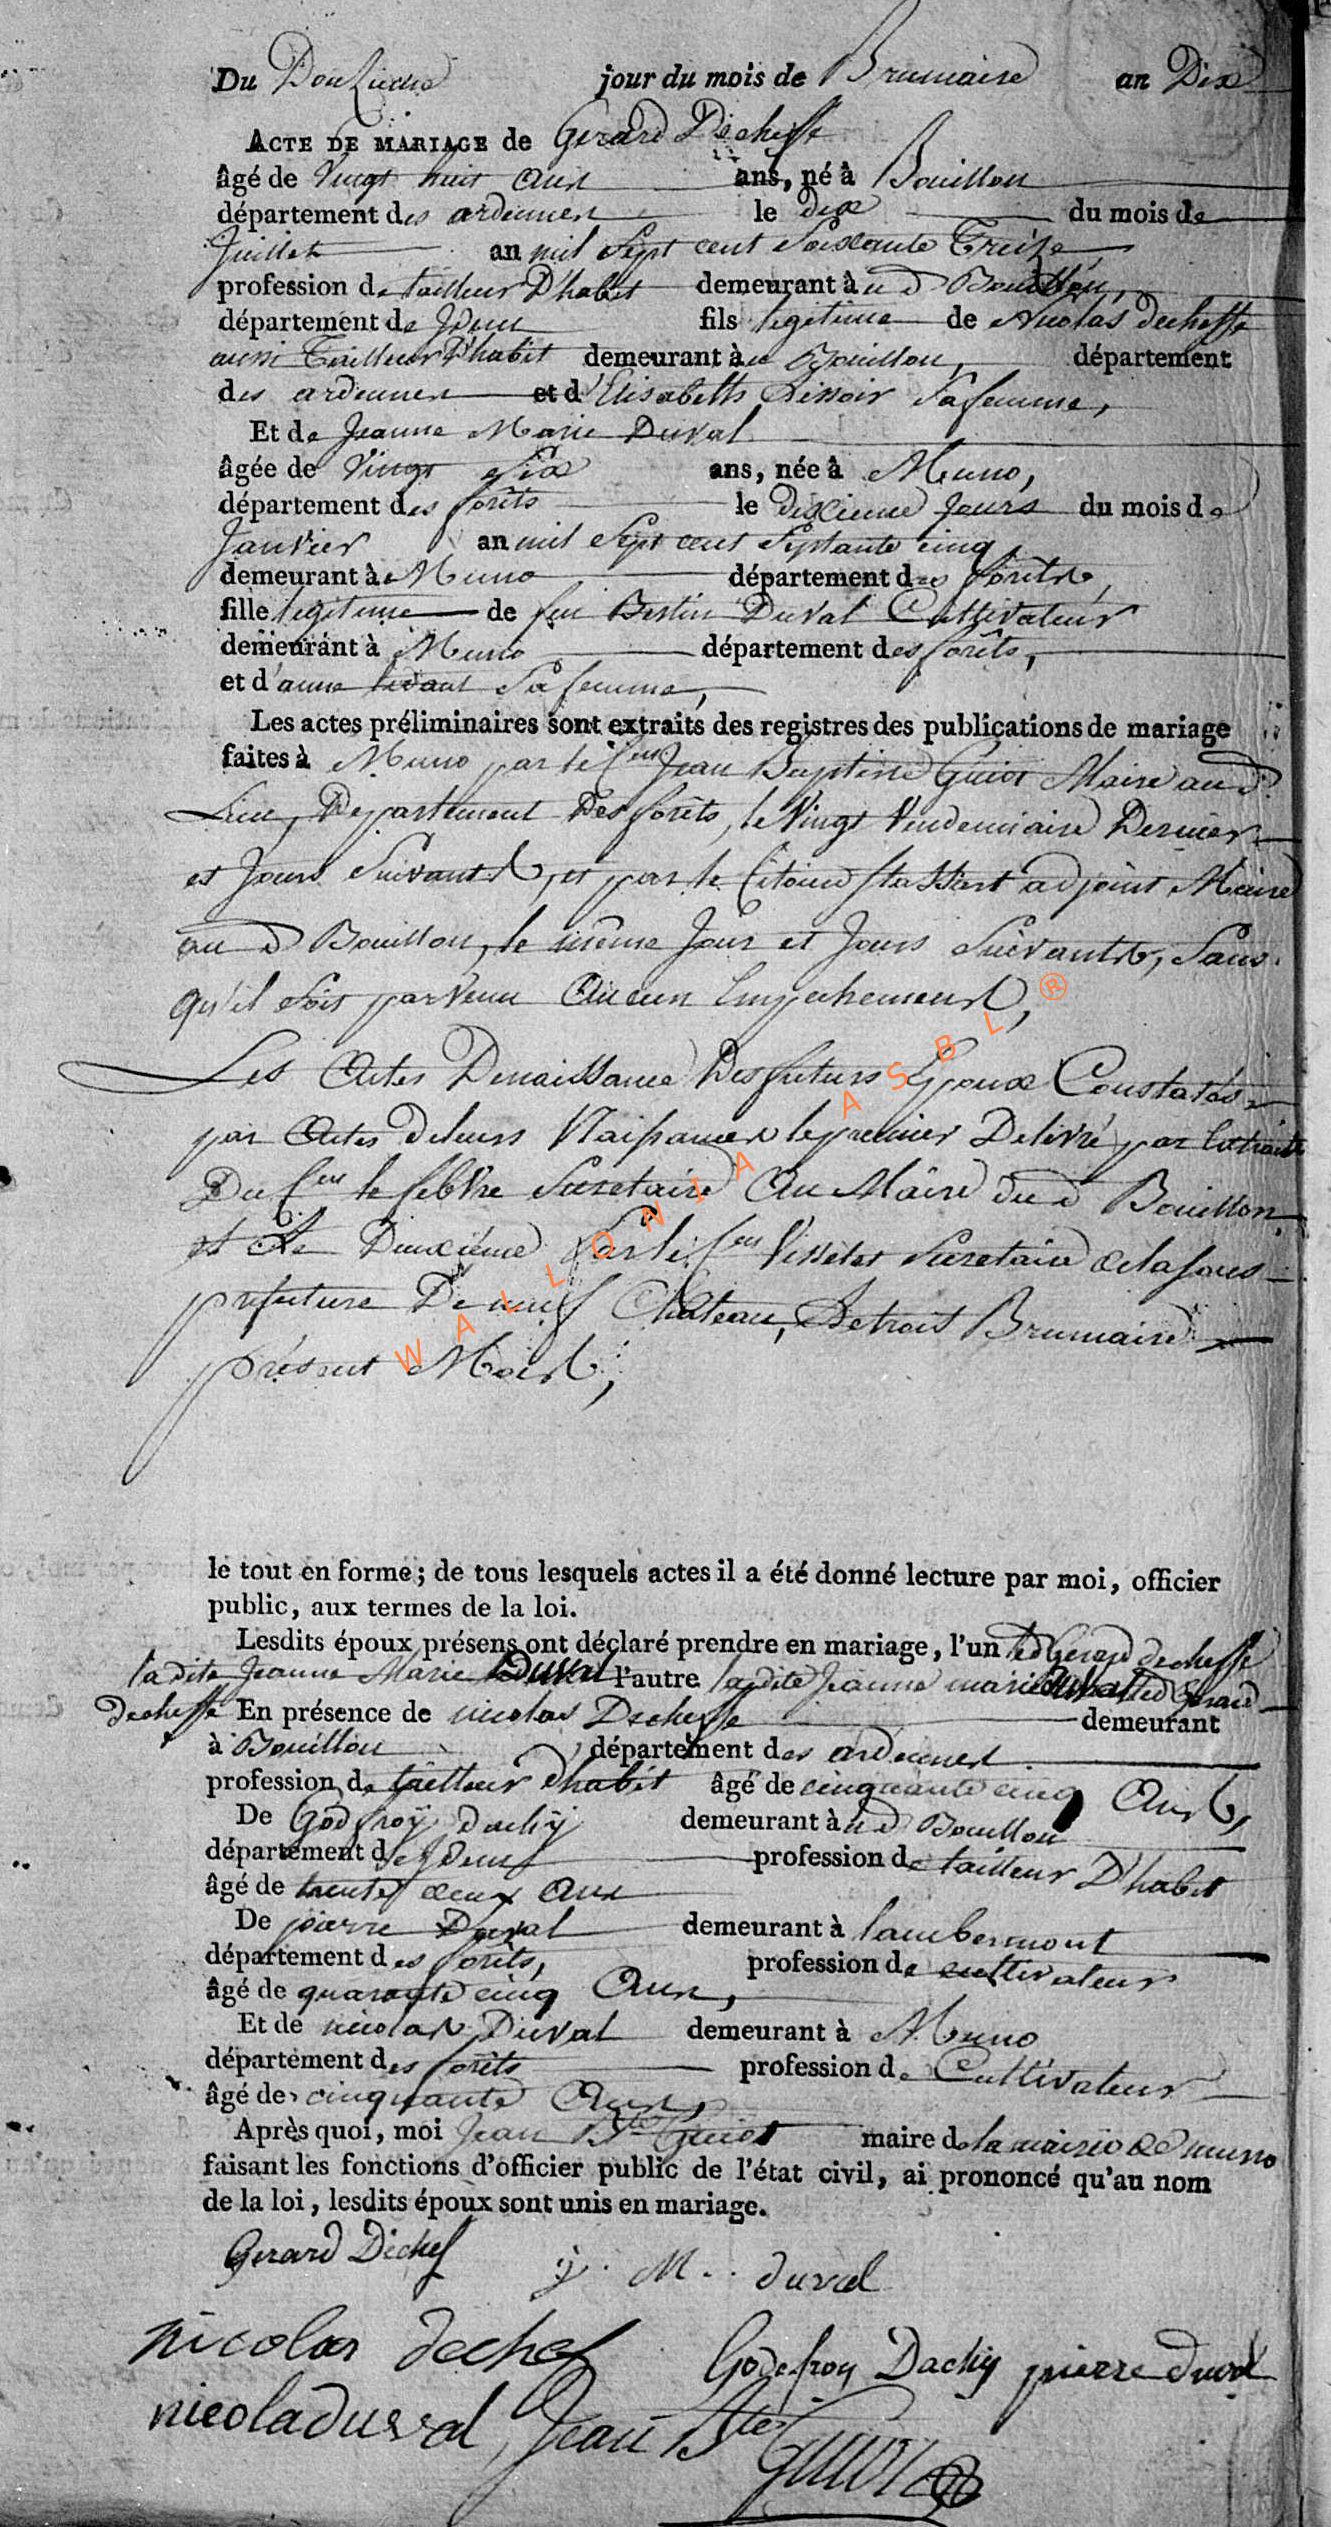 Du Douzieme jour du mois de Brumaire an Dix
ACTE DE MARIAGE de Gerard Décheffe
âgé de Vingt huit Ans ans, né à Bouillon
département des ardennes le dix du mois de
Juillet an mil Sept cent Soixante Treize
profession de tailleur D'habit demeurant à u d Bouillon,
département de Idem fils legitime de Nicolas decheffe
aussi Tailleur D'habit demeurant à u Bouillon, département
des ardennes et d'Elisabeth Sa femme,
Et de Jeanne Marie Duval
âgée de Vingt Six ans, née à Muno,
département des forêts le dixieme Jours du mois de
Janvier an mil Sept cent Septante cinq,
demeurant à Muno département des forêts,
fille legitime de feu Bertin Duval Cultivateur
demeurant à Muno département des forêts,
et d'anne Sa femme,
Les actes préliminaires sont extraits des registres des publications de mariage
faites à Muno par le Cen Jean Baptiste Guiot Maire au d.
Lieu, Departement Des forêts, le Vingt Vendemiaire Dernier
et Jours Suivants, et par le Citoien adjoint Maire
au d Bouillon, le même Jour et Jours Suivants, Sans
qu'il soit parvenu Aucun Empechement,
Les Actes De naissance Des futurs Epoux Constatés
par Actes de leurs Naissances le premier Delivré par Extrait
Du Cen le febvre Secretaire Au Maire du d Bouillon
et Le Deuxième par le Cen Secretaire de la sous
prefecture De neuf Chateau, Le trois Brumaire
présent Mois,
WALLONIA ASBL ®
le tout en forme; de tous lesquels actes il a été donné lecture par moi, officier
public, aux termes de la loi.
Lesdits époux présens ont déclaré prendre en mariage, l'un led Gerard decheffe
ladite Jeanne Marie Duval l'autre ladite Jeanne marie Duval led Gerard
decheffe En présence de nicolas Decheffe demeurant
à Bouillon, département des ardennes
profession de tailleur dhabit âgé de cinquante cinq Ans,
De Godfroÿ dachÿ demeurant à u d Bouillon
département de Idem profession de tailleur D'habit
âgé de trente deux Ans
De pierre Duval demeurant à lambermont
département des forêts, profession de cultivateur
âgé de quarante cinq Ans,
Et de nicolas Duval demeurant à Muno
département des forêts profession de Cultivateur
âgé de cinquante Ans,
Après quoi, moi Jean Bte Guiot maire de la mairie de muno
faisant les fonctions d'officier public de l'état civil, ai prononcé qu'au nom
de la loi, lesdits époux sont unis en mariage.
Gerard Dechef
j. M.. duval
nicolas dechef
Godefroy Dachy pierre duval
nicoladuval, Jean Bte Guiot